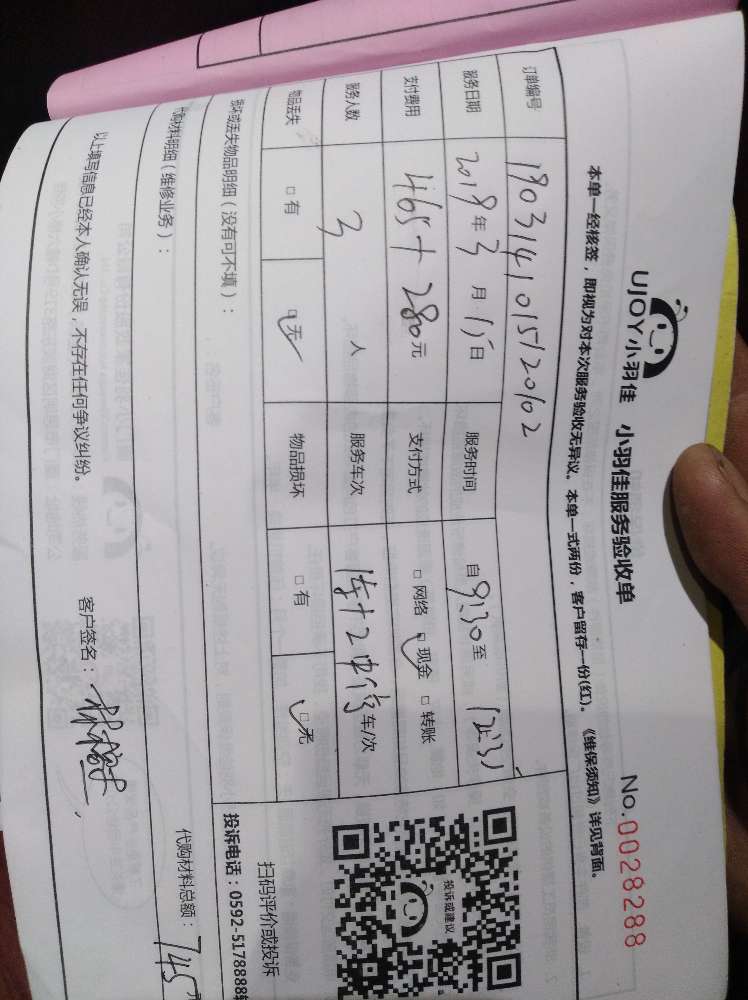 UJOY小羽佳 小羽佳服务验收单 No.0028288
本单一经核签，即视为对本次服务验收无异议。本单一式两份，客户留存一份(红)。《维保须知》详见背面。
订单编号 1803141015120102
服务日期 2018年3月15日 服务时间 自9:30至12:30
支付费用 465+280元 支付方式 □网络 □现金 □转账
服务人数 3人 服务车次 车/次
物品丢失 □有 □无 物品损坏 □有 □无
损坏或丢失物品明细（没有可不填）：
投诉或建议
扫码评价或投诉
投诉电话：0592-5178888转
代购材料明细（维修业务）： 代购材料总额：745元
以上填写信息已经本人确认无误，不存在任何争议纠纷。 客户签名：